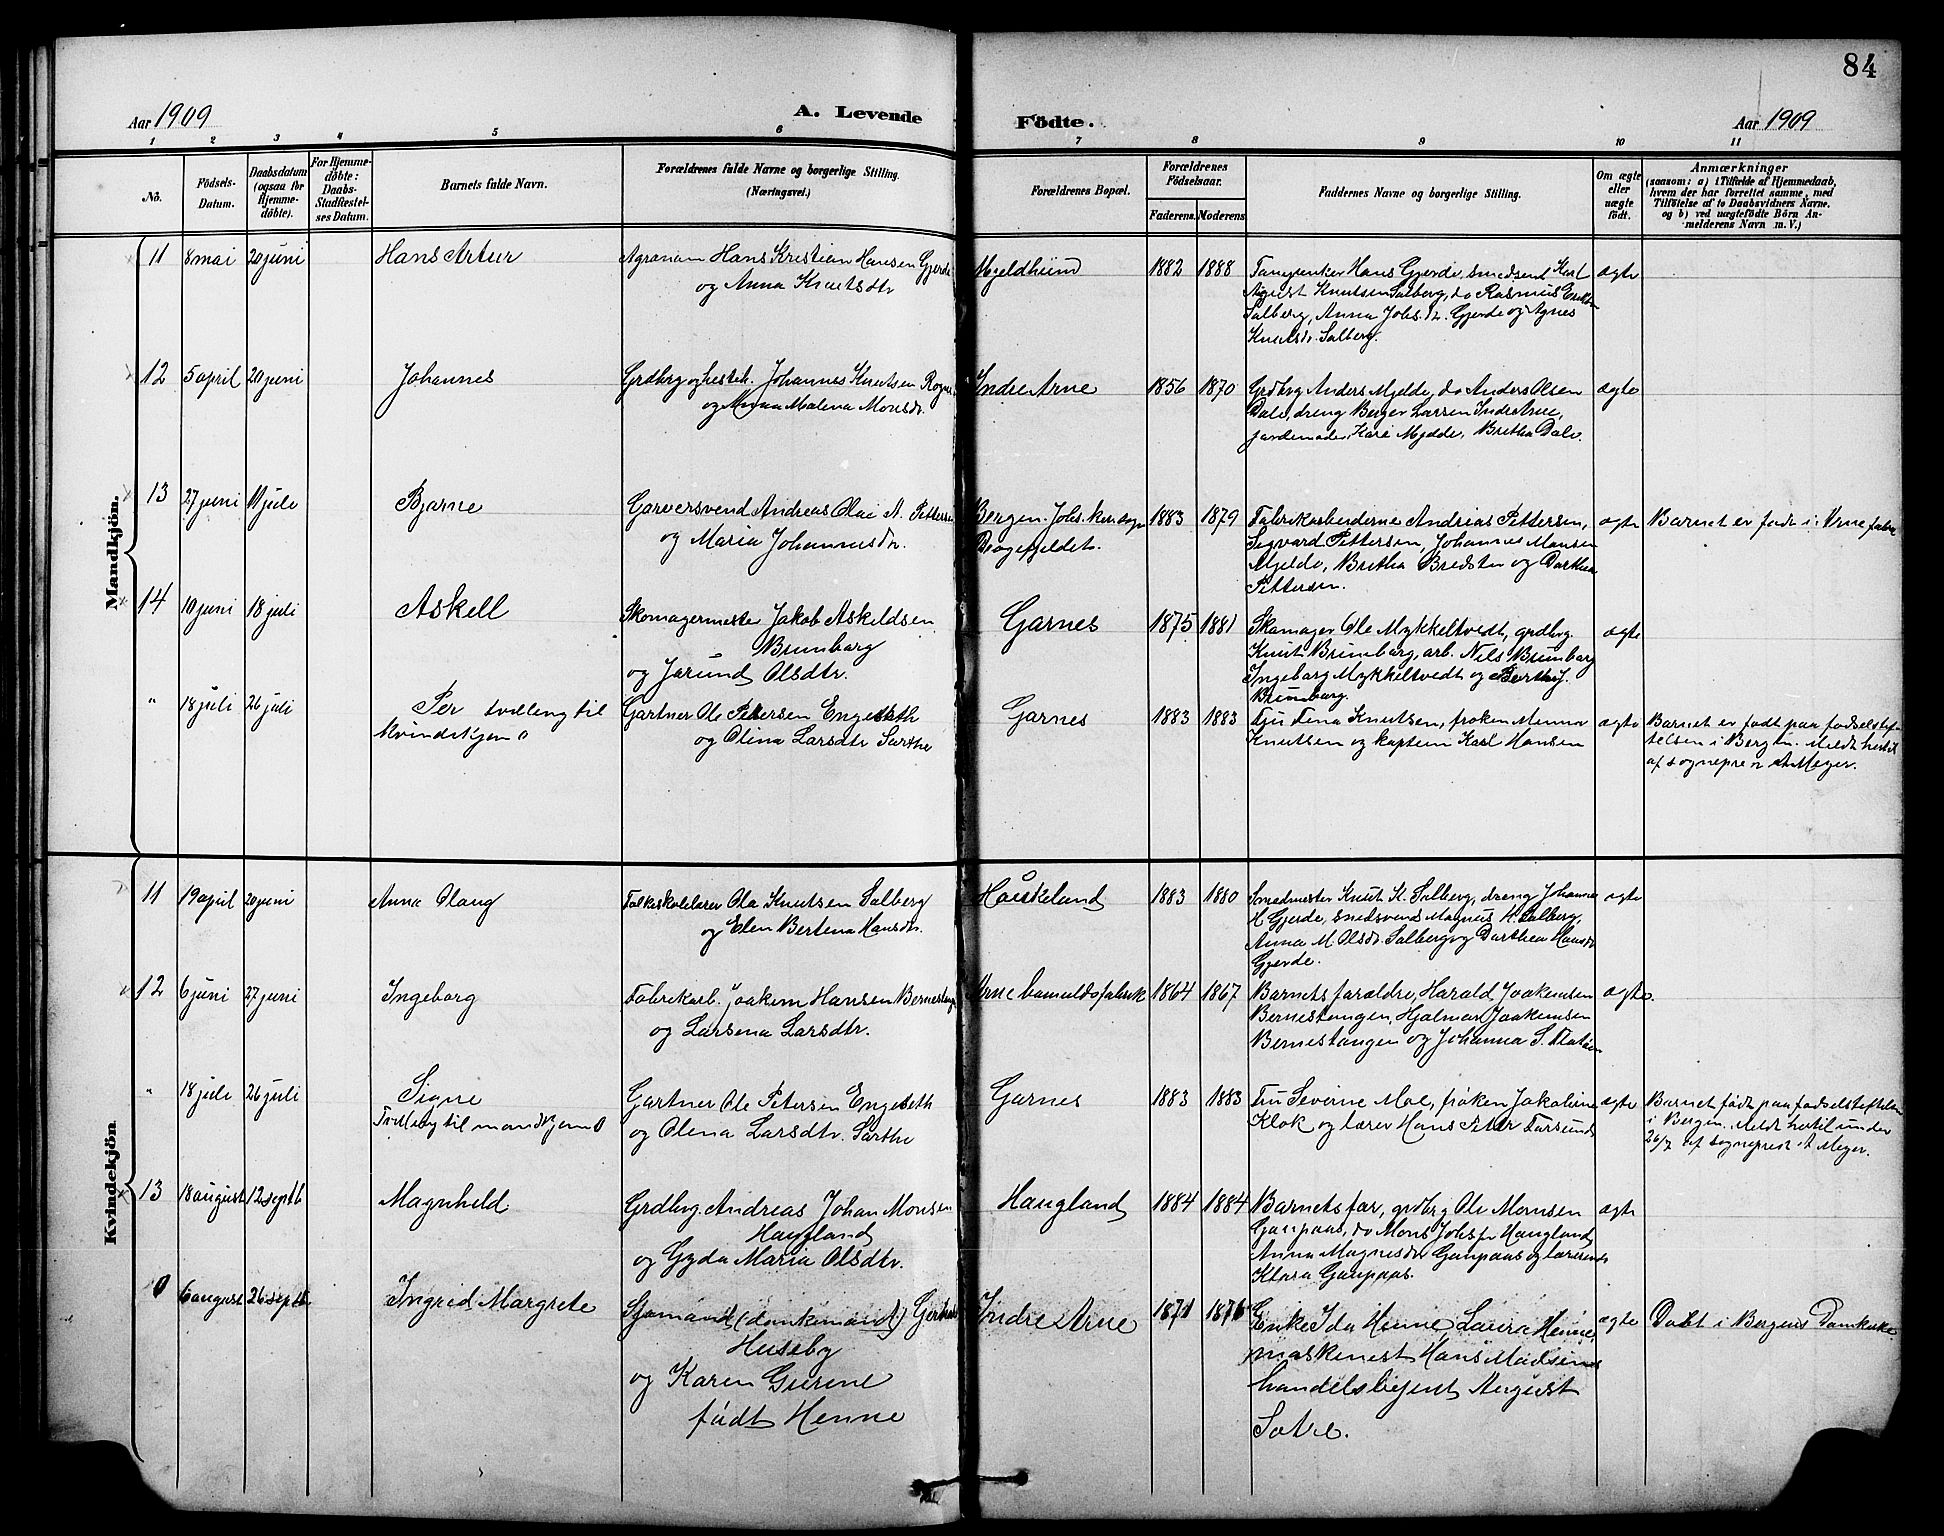 84
Aar 1909
A. Levende Födte.
Aar 1909
1 2 3 4 5 6 7 8 9 10 11
No.
Födsels-
Datum.
Daabsdatum
(ogsaa for
Hjemme-
døbte).
For Hjemme-
døbte:
Daabs-
Stadfæstel-
ses Datum.
Barnets fulde Navn.
Forældrenes fulde Navne og borgerlige Stilling.
(Næringsvei.)
Forældrenes Bopæl.
Forældrenes
Födselsaar.
Faderens. Moderens.
Faddernes Navne og borgerlige Stilling.
Om ægte
eller
uægte
født.
Anmærkninger
(saasom: a) i Tilfælde af Hjemmedaab,
hvem der har forrettet samme, med
Tilföielse af to Daabsvidners Navne.
og b) ved uægtefödte Börn An-
melderens Navn m. V.)
Mandkjön.
11 8 mai 20 juni
Hans Artur
Agronom Hans Kristian Hansen Gjerde
og Anna Knutsdtr
Mjeldheim
1882 1888
Hans Gjerde, smedsvend Karl
August Knutsen Salberg, do Rasmus
Salberg, Anna Johs. Dr. Gjerde og Agnes
Knutsdr Salberg.
ægte
12 5 april 20 juni
Johannes
Johannes Knutsen
og Anna Malena Monsdr.
Indre Arne
1856 1870
Grdbrg Anders Mjelde, do Anders Olsen
Dale, dreng Berger Larsen Indre Arne,
jordemoder Kari Mjelde, Britha Dale.
ægte
13 27 juni 11 juli
Bjarne
Garversvend Andreas Olai A. Pettersen
og Maria Johannesdr.
Bergen. Johs. kirkesogn
1883 1879
Fabrikarbeiderne Andreas Pettersen,
Sigvard Pettersen, Johannes Monsen
Mjelde, Britha Bredsten og Dorthea
Pettersen.
ægte
Barnet er født i Arne fabr
14 10 juni 18 juli
Askell
Skomagermester Jakob Askeldsen
Brumborg
og Jorund Olsdtr.
Garnes
1875 1881
Skomager Ole Mykkeltvedt, grdbrg.
Knut Brumborg, arb. Nils Brumborg
Ingeborg Mykkeltvedt og Bertha J.
Brumborg.
ægte
" 18 juli 26 juli
Per tvilling til
Kvindekjøn 0
Gartner Ole Petersen Engeseth
og Olina Larsdtr Sørthe
Garnes
1883 1883
Fru Lena Knutsen, frøken Minna
Knutsen og kaptein Karl Hansen
ægte
Barnet er født paa fødselstif-
telsen i Bergen. Meldt hertil
af sogneprest A Meyer.
Kvindekjön
11 19 april 20 juni
Anna Olaug
Folkeskolelærer Ole Knutsen Salberg
og Elen Bertina Hansdtr.
Haukeland
1883 1880
Smedmester Knut K. Salberg, dreng Johannes
H Gjerde, smedsvend Magnus K. Salberg,
Anna M. Olsdr. Salberg og Dorthea Hansdr
Gjerde.
ægte
12 6 juni 27 juni
Ingeborg
Fabrikarb. Joakim Hansen Bernestangen
og Larsina Larsdtr.
Arne bomuldsfabrik
1864 1867
Barnets forældre, Harald Joakimsen
Bernestangen, Hjalmar Joakimsen
Bernestangen og Johanna S. Flatøen
ægte.
" 18 juli 26 juli
Signe
Tvilling til mandkjøn 0
Gartner Ole Petersen Engeseth
og Olena Larsdtr. Sørthe
Garnes
1883 1883
Fru Severine Moe, frøken Jakobine
Klok og lærer Hans Peter Farsund
ægte
Barnet født paa fødselstiftelsen
i Bergen. Meldt hertil under
26/7 af sogneprest A Meyer.
13 18 august 12 septb
Magnhild
Grdbrg. Andreas Johan Monsen
Haugland
og Gyda Maria Olsdtr.
Haugland
1884 1884
Barnets far, grdbrg Ole Monsen
Gaupaas, do Mons Johs. Haugland
Anna Magnesdr Gaupaas og lærerinde
Klara Gaupaas.
ægte
0 6 august 26 septb.
Ingrid Margrete
Sjømand (donkemand)
Huseby
og Karen Gurine
født Henne
Indre Arne
1871 1876
Enke Ida Henne, Laura Henne,
maskinist Hans Madsen
handelsbetjent August
Sotre.
ægte
Døbt i Bergens Domkirke